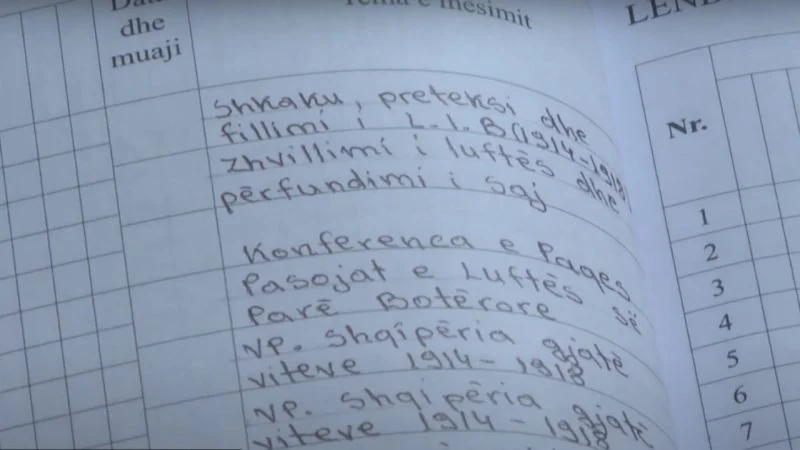 dhe
muaji
Tema e mësimit
Shkaku, preteksi dhe
fillimi i L.I.B (1914-1918)
zhvillimi i luftës dhe
përfundimi i saj
Konferenca e Paqes
Pasojat e Luftës së
Parë Botërore
VP. Shqipëria gjatë
viteve 1914-1918
VP. Shqipëria gjatë
viteve 1914-1918
Nr.
1
2
3
4
5
6
7